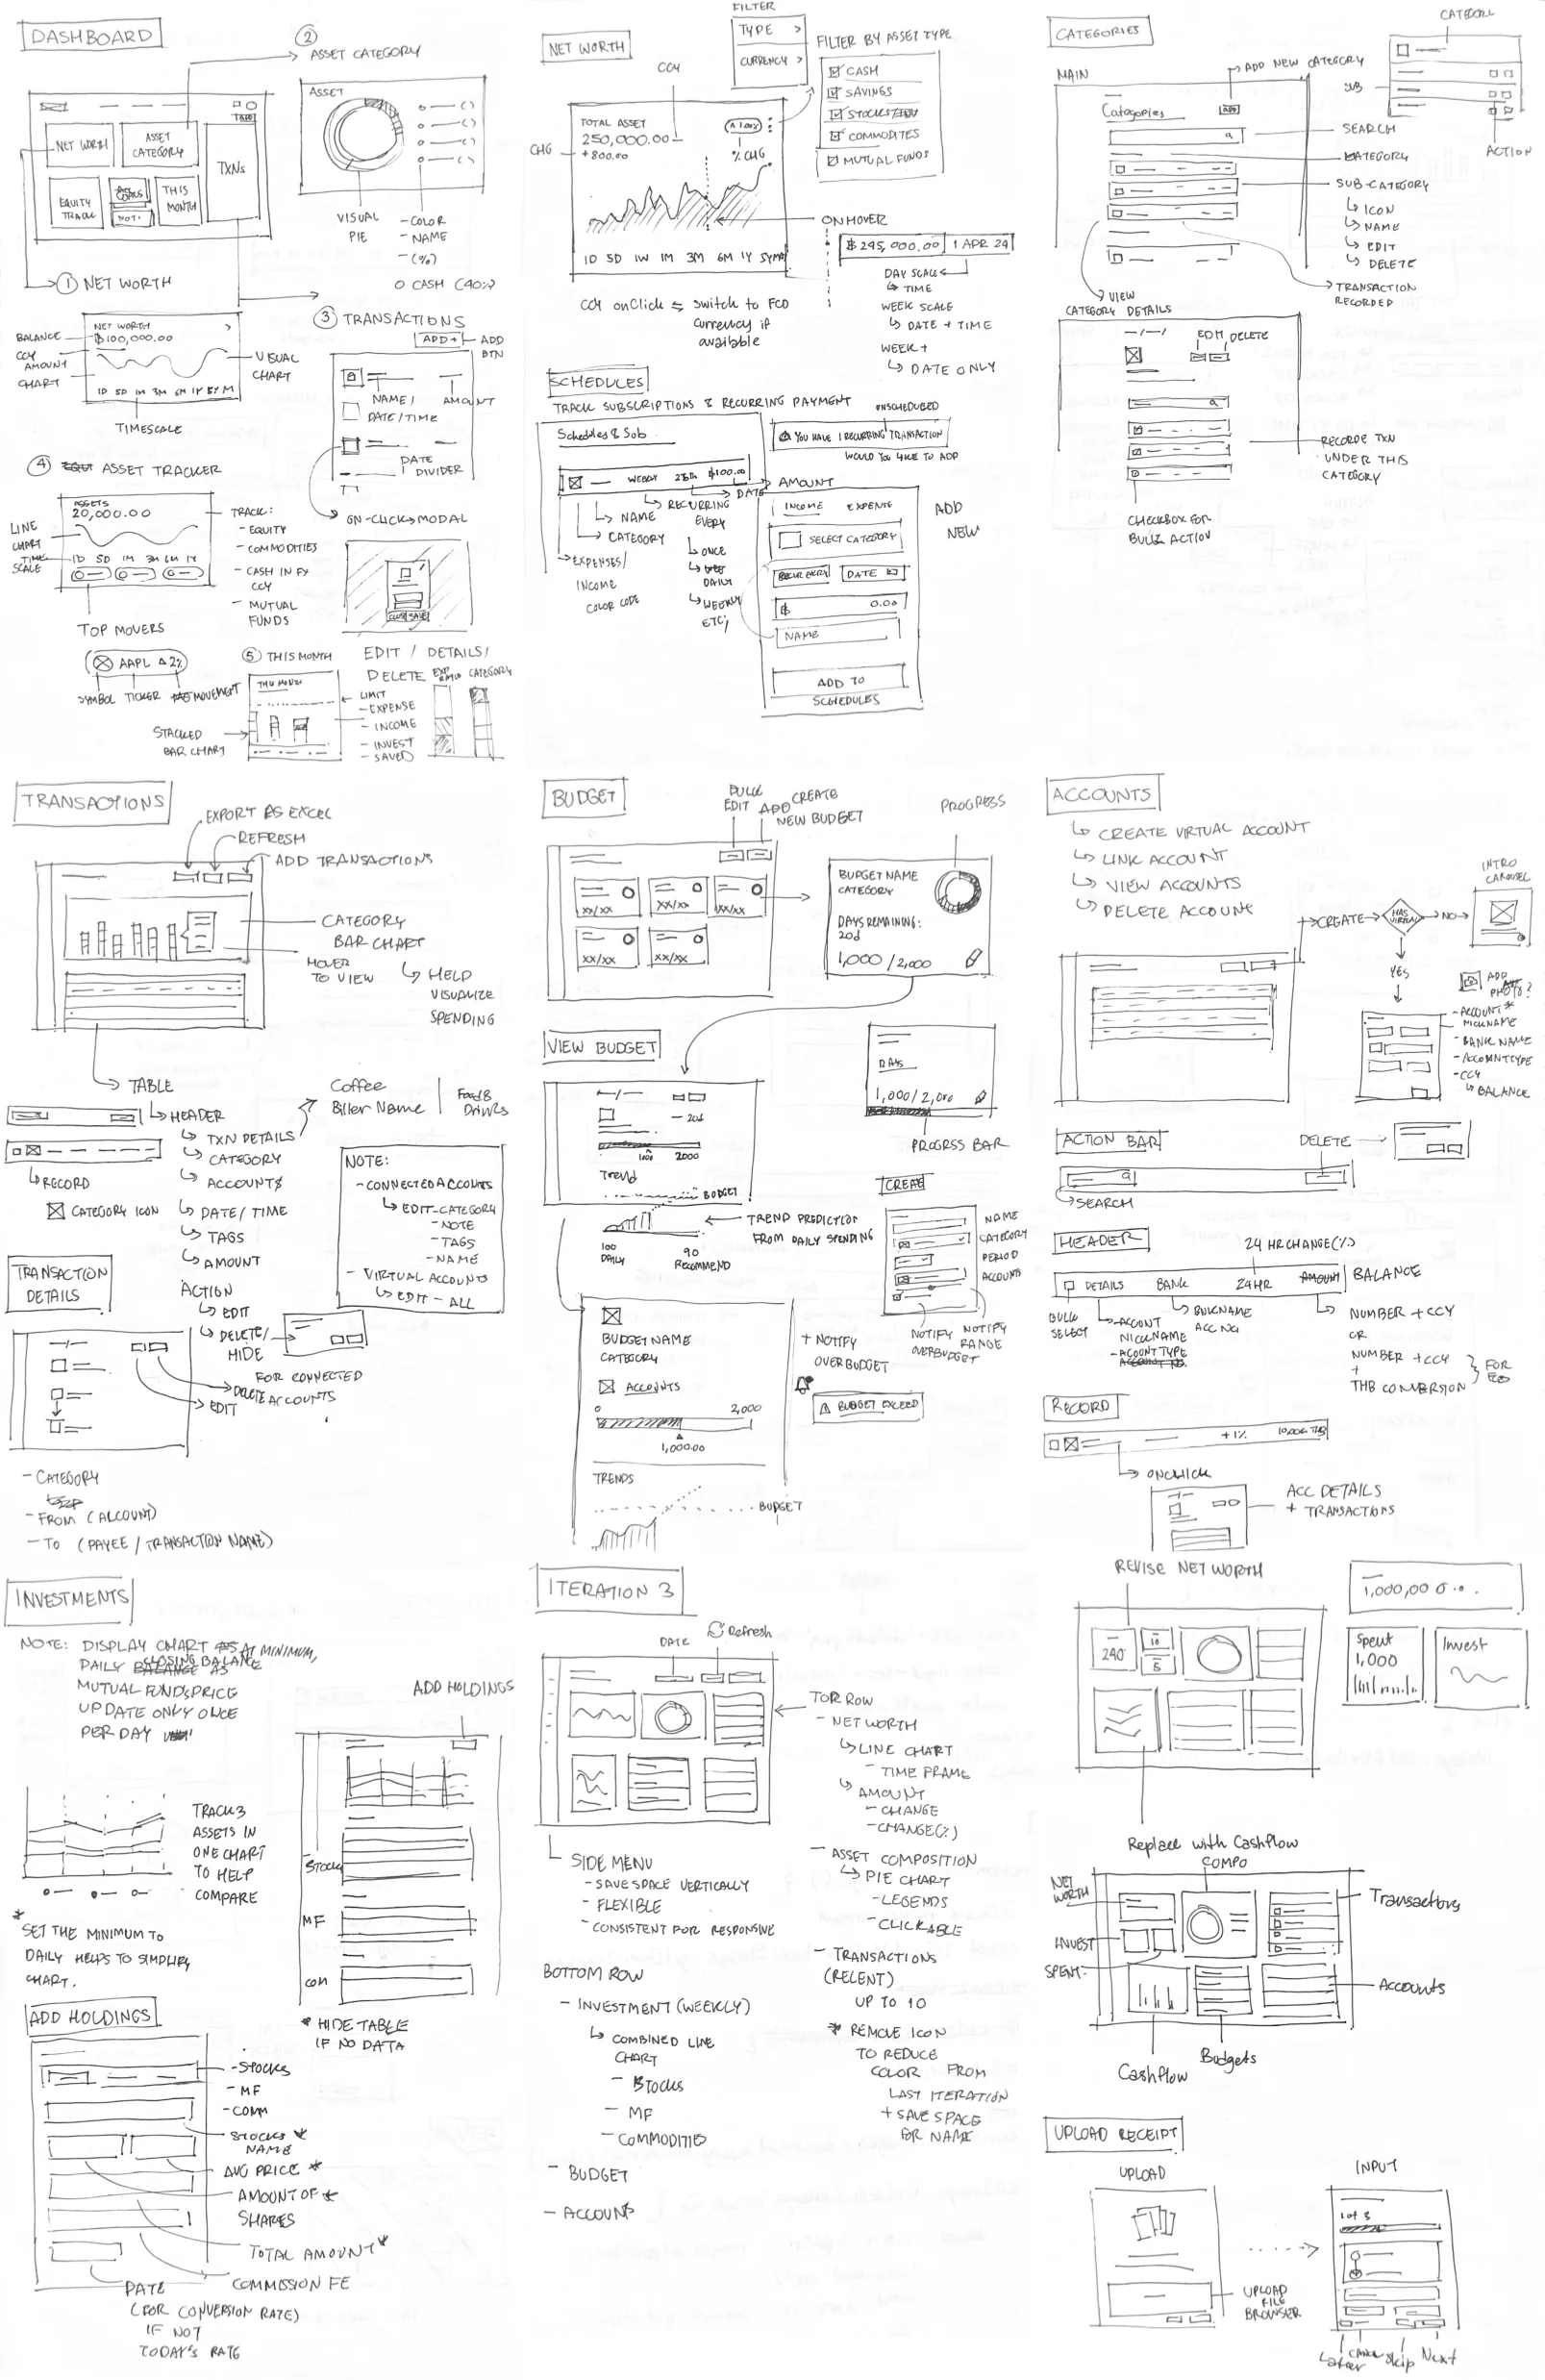 DASHBOARD
②
ASSET CATEGORY
NET WORTH
ASSET
CATEGORY
ADD
TXNs
EQUITY
TRACK
NOTI
THIS
MONTH
ASSET
VISUAL
PIE
- COLOR
- NAME
- (%)
O CASH (40%)
① NET WORTH
BALANCE
CCY
AMOUNT
CHART
NET WORTH >
฿100,000.00
1D 5D 1M 3M 6M 1Y 5Y M
VISUAL
CHART
TIMESCALE
③ TRANSACTIONS
ADD +
ADD
BTN
NAME/
DATE/TIME
AMOUNT
DATE
DIVIDER
ON-CLICK → MODAL
CLOSE SAVE
EDIT / DETAILS /
DELETE
④ ASSET TRACKER
ASSETS
20,000.00
1D 5D 1M 3M 6M 1Y
LINE
CHART
TIME
SCALE
TRACK:
- EQUITY
- COMMODITIES
- CASH IN FX
CCY
- MUTUAL
FUNDS
TOP MOVERS
AAPL Δ 2%
SYMBOL TICKER MOVEMENT
⑤ THIS MONTH
THIS MONTH
STACKED
BAR CHART
LIMIT
- EXPENSE
- INCOME
- INVEST
- SAVED
CATEGORY
NET WORTH
FILTER
TYPE >
CURRENCY >
FILTER BY ASSET TYPE
CASH
SAVINGS
STOCKS
COMMODITES
MUTUAL FUNDS
CCY
TOTAL ASSET
250,000.00
+800.00
CHG
Δ 1.00%
% CHG
ON HOVER
฿ 245,000.00 | 1 APR 24
1D 5D 1W 1M 3M 6M 1Y 5Y MAX
DAY SCALE
↳ TIME
WEEK SCALE
↳ DATE + TIME
WEEK +
↳ DATE ONLY
CCY onClick ⇆ switch to FCD
currency if
available
SCHEDULES
TRACK SUBSCRIPTIONS & RECURRING PAYMENT
Schedules & Sub
ONSCHEDULED
YOU HAVE 1 RECURRING TRANSACTION
WOULD YOU LIKE TO ADD
WEEKLY 25th ฿100.00
AMOUNT
DATE
RECURRING
EVERY
↳ ONCE
↳ DAILY
↳ WEEKLY
ETC,
↳ NAME
↳ CATEGORY
→ EXPENSES/
INCOME
COLOR CODE
INCOME EXPENSE
SELECT CATEGORY
RECUR EVERY
DATE
฿ 0.00
NAME
ADD TO
SCHEDULES
ADD
NEW
CATEGORIES
MAIN
ADD NEW CATEGORY
Categories
ADD
SEARCH
CATEGORY
SUB-CATEGORY
↳ ICON
↳ NAME
↳ EDIT
↳ DELETE
TRANSACTION
RECORDED
SUB
ACTION
VIEW
CATEGORY DETAILS
EDIT DELETE
RECORDE TXN
UNDER THIS
CATEGORY
CHECKBOX FOR
BULK ACTION
TRANSACTIONS
EXPORT AS EXCEL
REFRESH
ADD TRANSACTIONS
CATEGORY
BAR CHART
↳ HELP
VISUALIZE
SPENDING
HOVER
TO VIEW
TABLE
↳ HEADER
↳ TXN DETAILS
↳ CATEGORY
↳ ACCOUNTS
↳ DATE/TIME
↳ TAGS
↳ AMOUNT
Coffee
Biller Name
Food &
Drinks
↳ RECORD
CATEGORY ICON
ACTION
↳ EDIT
↳ DELETE/
HIDE
FOR CONNECTED
ACCOUNTS
NOTE:
- CONNECTED ACCOUNTS
↳ EDIT - CATEGORY
- NOTE
- TAGS
- NAME
- VIRTUAL ACCOUNTS
↳ EDIT - ALL
TRANSACTION
DETAILS
DELETE
EDIT
- CATEGORY
- FROM (ACCOUNT)
- TO (PAYEE / TRANSACTION NAME)
BUDGET
BULK
EDIT
ADD CREATE
NEW BUDGET
PROGRESS
xx/xx
xx/xx
xx/xx
xx/xx
xx/xx
BUDGET NAME
CATEGORY
DAYS REMAINING:
20d
1,000 / 2,000
VIEW BUDGET
20d
1000 2000
Trend
BUDGET
DAYS
1,000 / 2,000
PROGRSS BAR
TREND PREDICTION
FROM DAILY SPENDING
100
DAILY
90
RECOMMEND
CREATE
NAME
CATEGORY
PERIOD
ACCOUNTS
NOTIFY
OVERBUDGET
NOTIFY
RANGE
BUDGET NAME
CATEGORY
ACCOUNTS
0 2,000
1,000.00
+ NOTIFY
OVERBUDGET
BUDGET EXCEED
TRENDS
BUDGET
ACCOUNTS
↳ CREATE VIRTUAL ACCOUNT
↳ LINK ACCOUNT
↳ VIEW ACCOUNTS
↳ DELETE ACCOUNT
CREATE
HAS
VIRTUAL
NO
INTRO
CAROUSEL
YES
ADD
PHOTO?
- ACCOUNT *
NICKNAME
- BANK NAME
- ACCOUNT TYPE
- CCY
↳ BALANCE
ACTION BAR
DELETE
SEARCH
HEADER
24 HR CHANGE (%)
DETAILS BANK 24HR AMOUNT BALANCE
BULK
SELECT
↳ ACCOUNT
NICKNAME
- ACOUNT TYPE
ACCOUNT NO.
↳ BANKNAME
ACC NO
NUMBER + CCY
OR
NUMBER + CCY
+
THB CONVERSION
FOR
FCD
RECORD
+1% 10,000 THB
ONCLICK
ACC DETAILS
+ TRANSACTIONS
INVESTMENTS
NOTE: DISPLAY CHART AS A MINIMUM,
DAILY CLOSING BALANCE AS
MUTUAL FUNDS PRICE
UPDATE ONLY ONCE
PER DAY
TRACK 3
ASSETS IN
ONE CHART
TO HELP
COMPARE
*
SET THE MINIMUM TO
DAILY HELPS TO SIMPLIFY
CHART.
ADD HOLDINGS
STOCK
MF
COM
* HIDE TABLE
IF NO DATA
ADD HOLDINGS
- STOCKS
- MF
- COMM
STOCKS *
NAME
AVG PRICE *
AMOUNT OF *
SHARES
TOTAL AMOUNT *
COMMISSION FE
DATE
(FOR CONVERSION RATE)
IF NOT
TODAY'S RATE
ITERATION 3
DATE
Refresh
TOP ROW
- NET WORTH
↳ LINE CHART
- TIME FRAME
↳ AMOUNT
- CHANGE
- CHANGE (%)
- ASSET COMPOSITION
↳ PIE CHART
- LEGENDS
- CLICKABLE
- TRANSACTIONS
(RECENT)
UP TO 10
* REMOVE ICON
TO REDUCE
COLOR FROM
LAST ITERATION
+ SAVE SPACE
FOR NAME
SIDE MENU
- SAVE SPACE VERTICALLY
- FLEXIBLE
- CONSISTENT FOR RESPONSIVE
BOTTOM ROW
- INVESTMENT (WEEKLY)
↳ COMBINED LINE
CHART
- STOCKS
- MF
- COMMODITIES
- BUDGET
- ACCOUNTS
REVISE NET WORTH
240
10
5
1,000,00 0...
Spent
1,000
Invest
Replace with Cashflow
COMPO
NET
WORTH
INVEST
SPENT
Transactions
Accounts
Cashflow
Budgets
UPLOAD RECEIPT
UPLOAD
UPLOAD
FILE
BROWSER
INPUT
1 of 3
Later Cancel Skip Next